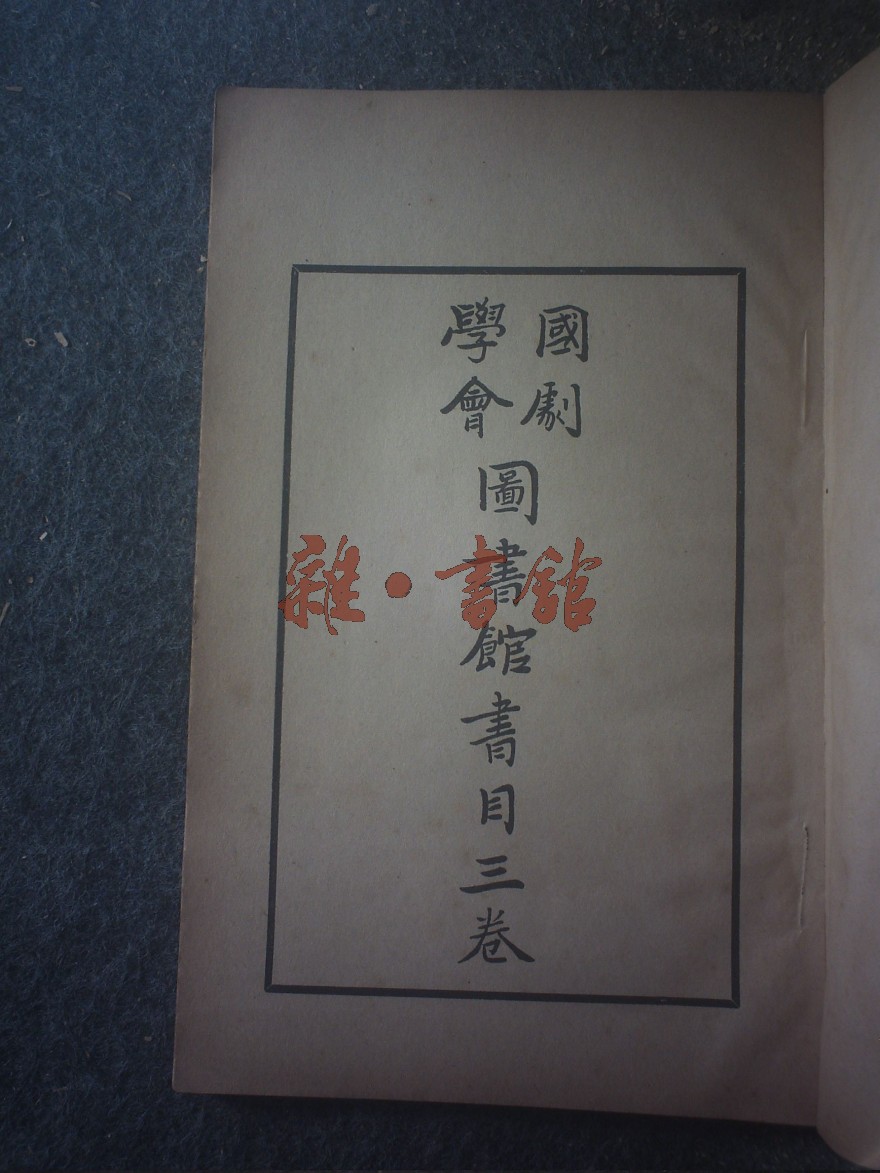 國劇
學會
圖書館書目三卷
雜·書館